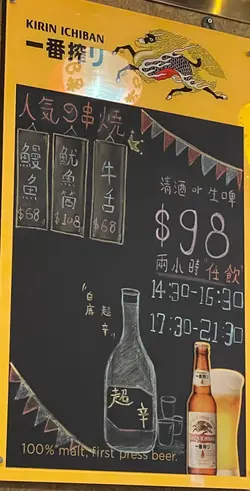 KIRIN ICHIBAN
一番搾り
人気の串燒
鰻魚
$68
魷魚筒
$108
牛舌
$68
清酒 or 生啤
$98
兩小時"任飲"
14:30-16:30
17:30-21:30
"白鹿 超辛"
超辛
KIRIN
ICHIBAN
一番搾り
100% malt, first press beer.